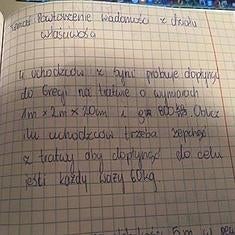 Temat: Powtórzenie wiadomości z działu
właściwości
4 uchodźców z Syrii próbuje dopłynąć
do Grecji na tratwie o wymiarach
1m x 2m x 20cm i g= 800 kg. Oblicz
ilu uchodźców trzeba zepchąć
z tratwy aby dopłynąć do celu
jeśli każdy waży 60kg
5 m